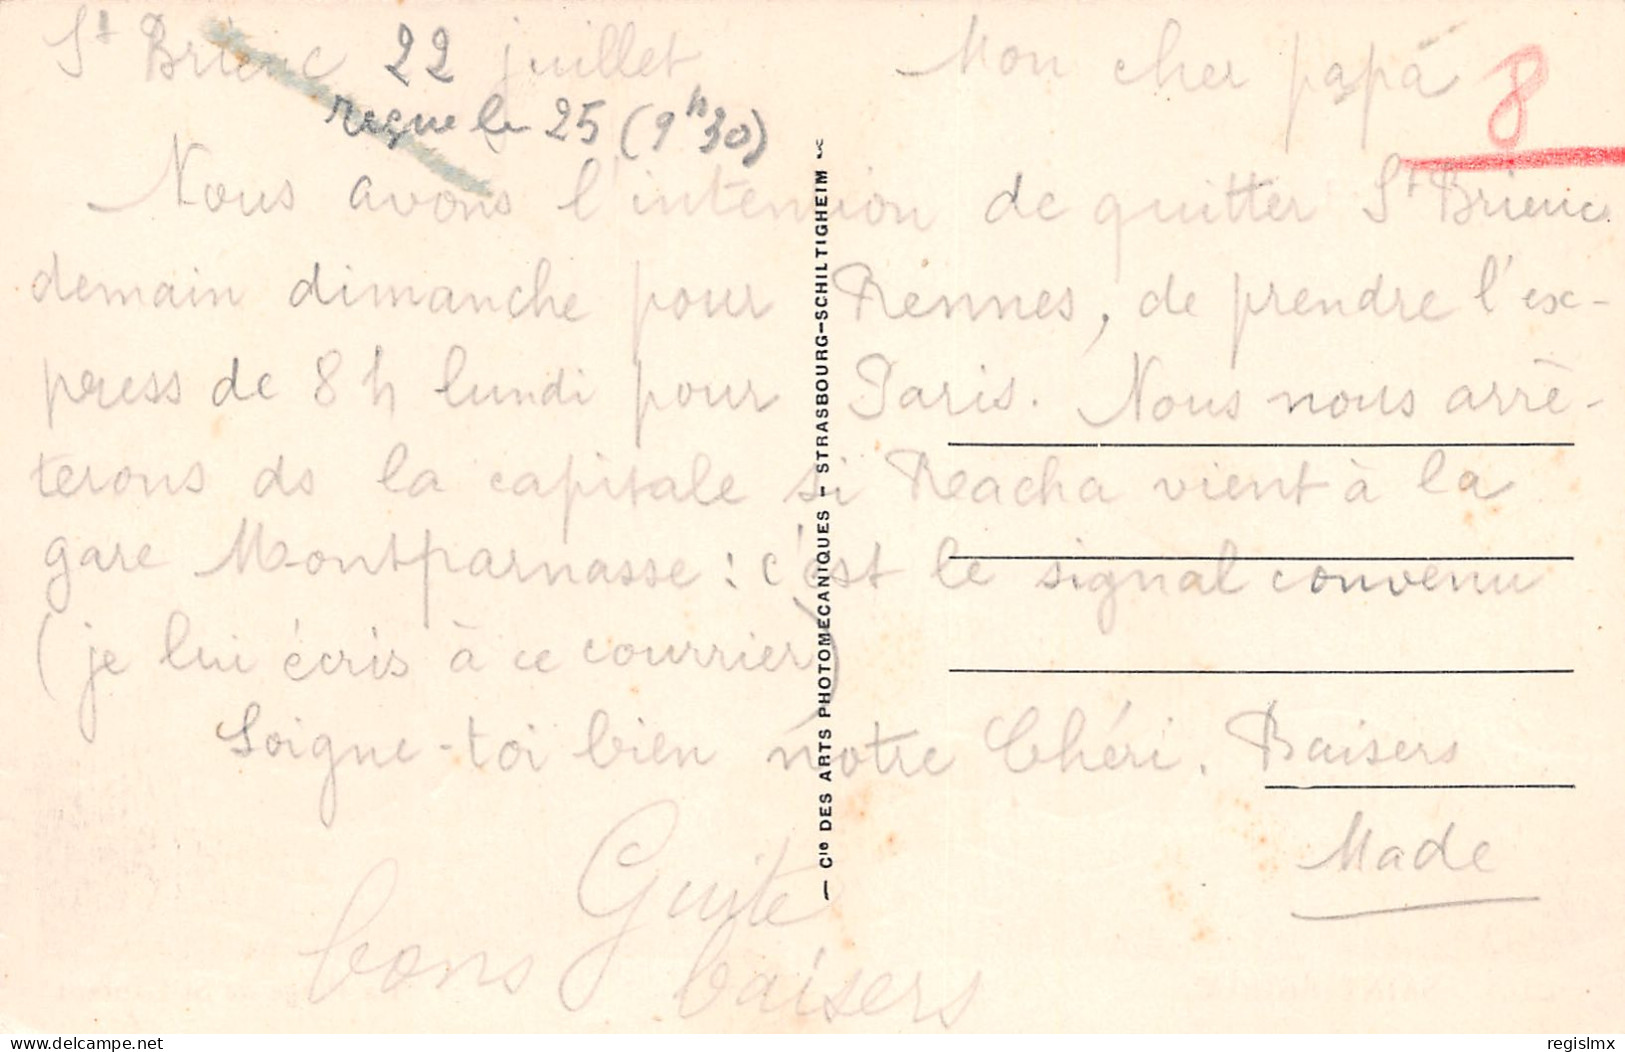 St Brieuc 22 juillet Mon cher papa 8
reçue le 25 (9h30)
Nous avons l'intention de quitter St Brieuc
demain dimanche pour Rennes, de prendre l'ex-
press de 8 h lundi pour Paris. Nous nous arrê-
terons ds la capitale si Reacha vient à la
gare Montparnasse : c'est le signal convenu
(je lui écris à ce courrier)
Soigne-toi bien notre Chéri. Baisers
Made
Guite
bons baisers
— Cie DES ARTS PHOTOMECANIQUES - STRASBOURG-SCHILTIGHEIM —
delcampe.net
regislmx